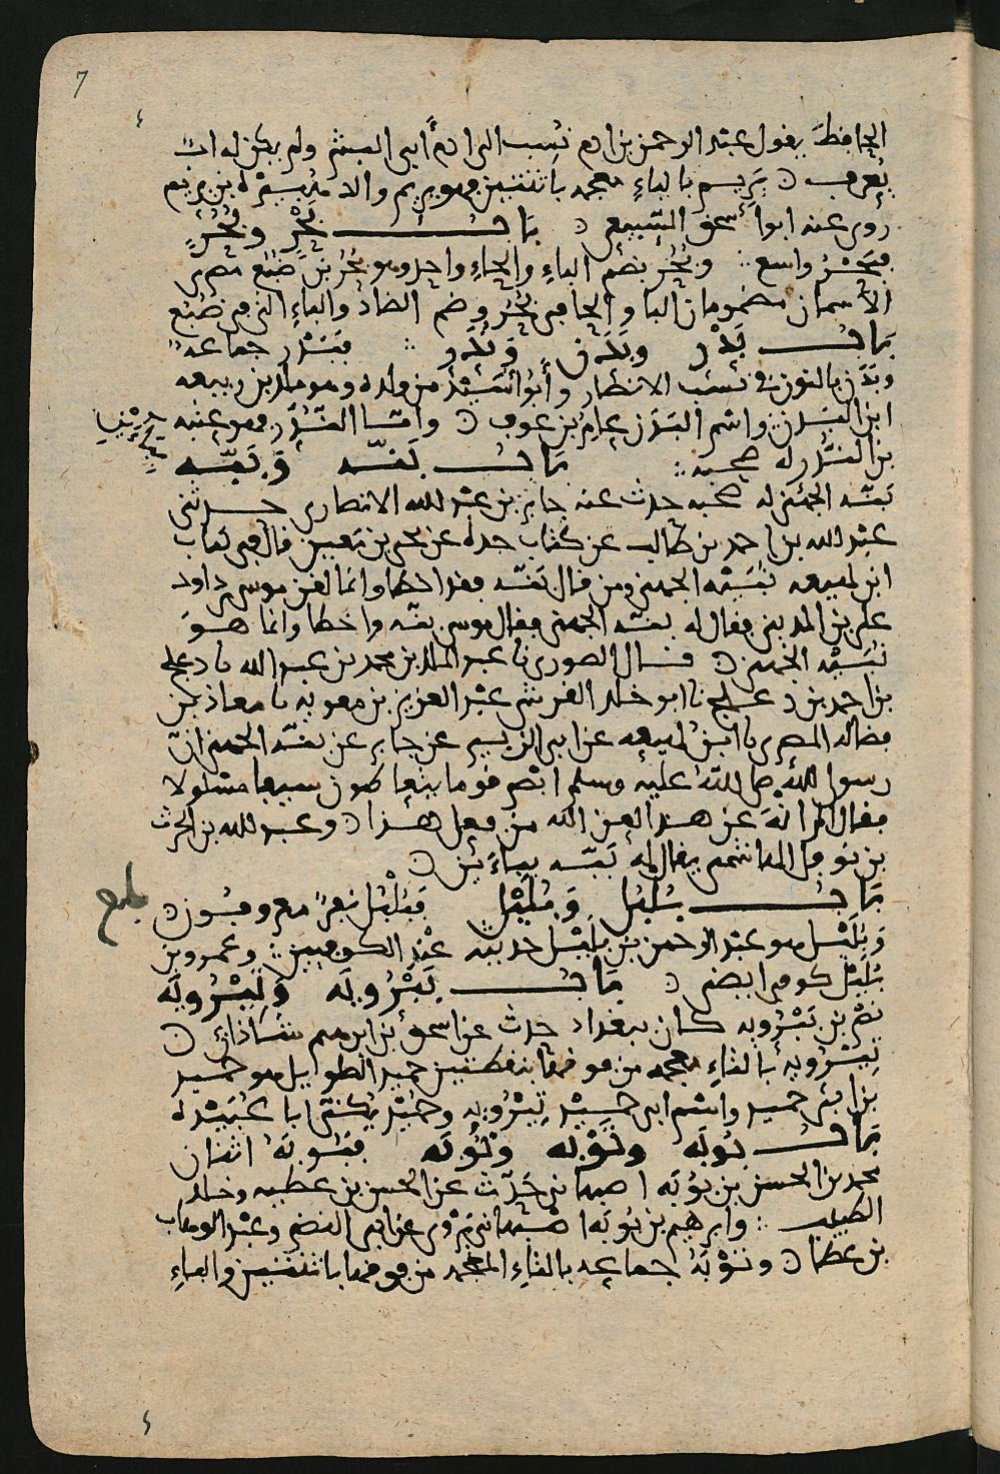 7
الحافظ يقول عبد الرحمن بن ادم نسب الى ادم أبي البشر ولم يكن له اب
يُعرف ۞ يَرِيم بالياء معجمه باثنتين هو يريم والد هبيرة بن يريم
روى عنه ابو اسحق السبيعي ۞ باب بَحْر وبُحُر
فبَحْر واسع ۞ وبُحُر بضم الباء والحاء واحد وهو بُحُر بن ضُبُع مصري
الاسمان مضمومان البا والحا في بُحُر وضم الضاد والباء التي في ضُبُع
باب بَدْر وبَدَن ونُدَّر ۞ فبَدْر جماعه
وبَدَن بالنون في نسب الانصار وأبو أُسَيْد من ولده وهو مالك بن ربيعه
ابن البَدَن واسم البَدَن عامر بن عوف ۞ وامّا النُّدَّر فهو عتبه
بن النُّدَّر له صحبه ۞ باب بَنَّه ونُبَيْه
بنّه الجهني له صحبه حدث عنه جابر بن عبد الله الانصاري حدثني
عبد الله بن احمد بن طالب عن كتاب جده عن يحيى بن معين قال في كتاب
ابن لهيعه نُبَيْه الجهني ومن قال بَنّه فقد اخطا وانما لقن موسى بن داود
علي بن المديني فقال له بنّه الجهني فقال موسى بنّه واخطا وانما هو
نُبَيْه الجهني ۞ قال الصوري نا عبد الملك بن محمد بن عبد الله نا دعلج
بن احمد بن دعلج نا ابو خلد القرشي عبد العزيز بن معويه نا معاذ بن
فضاله المصري نا ابن لهيعه عن ابي الزبير عن جابر عن بنّه الجهني ان
رسول الله صلى الله عليه وسلم ابصر قوما يتعاطون سيفا مسلولا
فقال الم انه عن هذا لعن الله من فعل هذا ۞ وعبد الله بن الحرث
بن نوفل الهاشمي يقال له بَبَّه بباءين ۞
باب بُلْبُل وبُلَيْل فبُلْبُل نفر معروفون ۞
وبُلَيْل هو عبد الرحمن بن بُلَيْل حديثه عند الكوفيين ۞ وعمرو بن
بُلَيْل كوفي ايضا ۞ باب بَيْرُويَه وتِيْرُويَه
نصر بن بَيْرُويه كان ببغداد حدث عن اسحق بن ابرهيم شاذان ۞
تِيْرُويه بالتاء معجمه من فوقها بنقطتين حميد الطويل هو حميد
بن ابي حميد واسم ابي حميد تِيْرُويه وحميد يكنى ابا عبيده
باب بُوبَه وتَوْبَه ونُوبَه فبُوبَه اثنان
محمد بن الحسن بن بُوبَه اصبهاني حَدّث عن الحسن بن عطيه وخلد
الطبيب ۞ وابرهيم بن بُوبَه اصبهاني يَرْوي عن ابي النضر وعبد الوهاب
بن عطا ۞ وتَوْبَه جماعه بالتاء المعجمه من فوقها باثنتين والباء